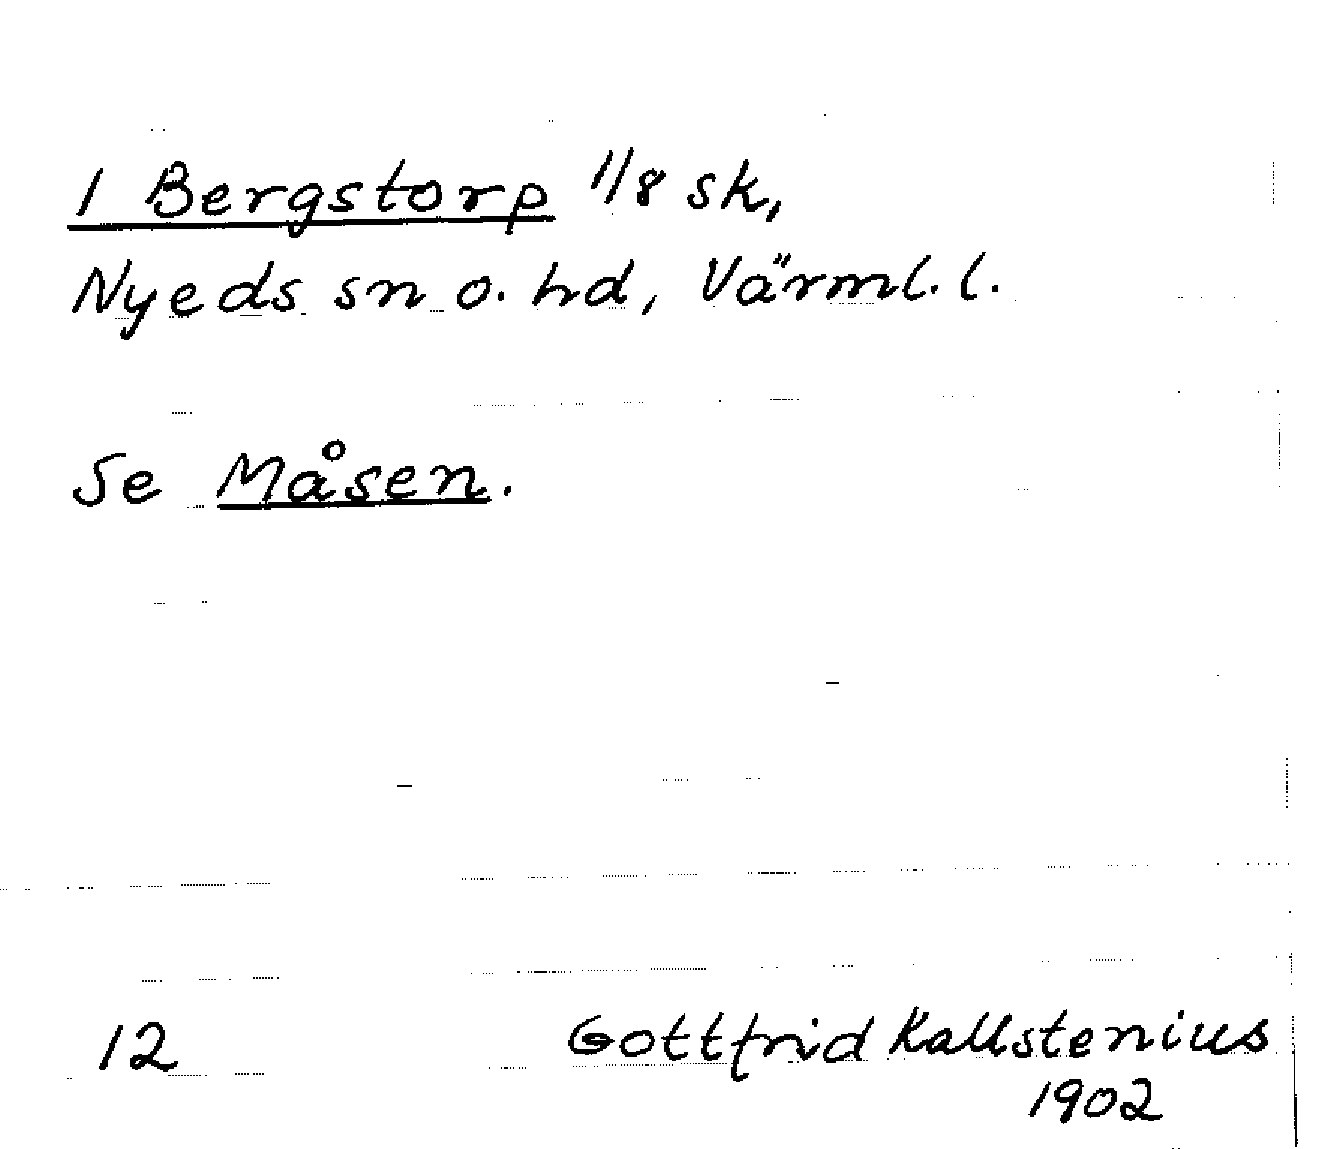 1 Bergstorp 1/8 sk,
Nyeds sn o. hd, Värml. l.
Se Måsen.
12
Gottfrid Kallstenius
1902